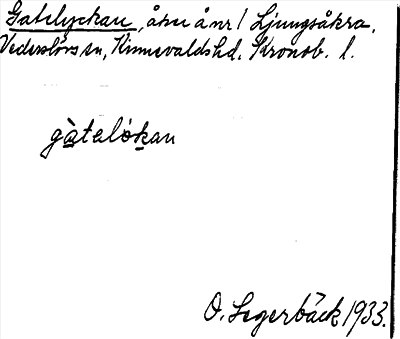 Gatelyckan, åker å nr 1 Ljungsåkra,
Vederslövs sn, Kinnevalds hd. Kronob. l.
gàtelòkan
O. Segerbäck 1933.